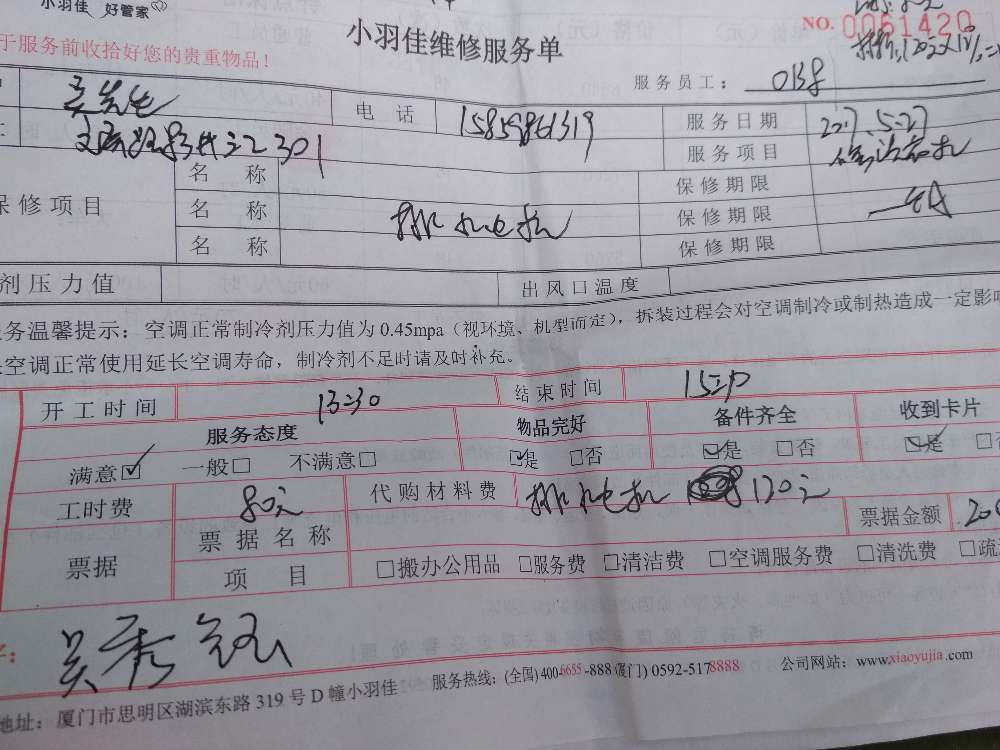 小羽佳 好管家
小羽佳维修服务单
NO. 0061420
于服务前收拾好您的贵重物品!
服务员工:
吴先生
电 话
15859861319
服务日期
2017.5.27
301
服务项目
保修项目
名 称
保修期限
名 称
排水电机
保修期限
一年
名 称
保修期限
剂压力值
出风口温度
务温馨提示: 空调正常制冷剂压力值为 0.45mpa (视环境、机型而定), 拆装过程会对空调制冷或制热造成一定影响
空调正常使用延长空调寿命, 制冷剂不足时请及时补充。
开工时间
13:30
结束时间
服务态度
物品完好
备件齐全
收到卡片
满意☑ 一般□ 不满意□
☑是 □否
☑是 □否
☑是 □
工时费
80元
代购材料费
排水电机
120元
票据
票据名称
票据金额
200
项 目
□搬办公用品 □服务费 □清洁费 □空调服务费 □清洗费 □疏
地址: 厦门市思明区湖滨东路 319 号 D 幢小羽佳
服务热线: (全国) 400-6655-888 (厦门) 0592-5178888
公司网站: www.xiaoyujia.com